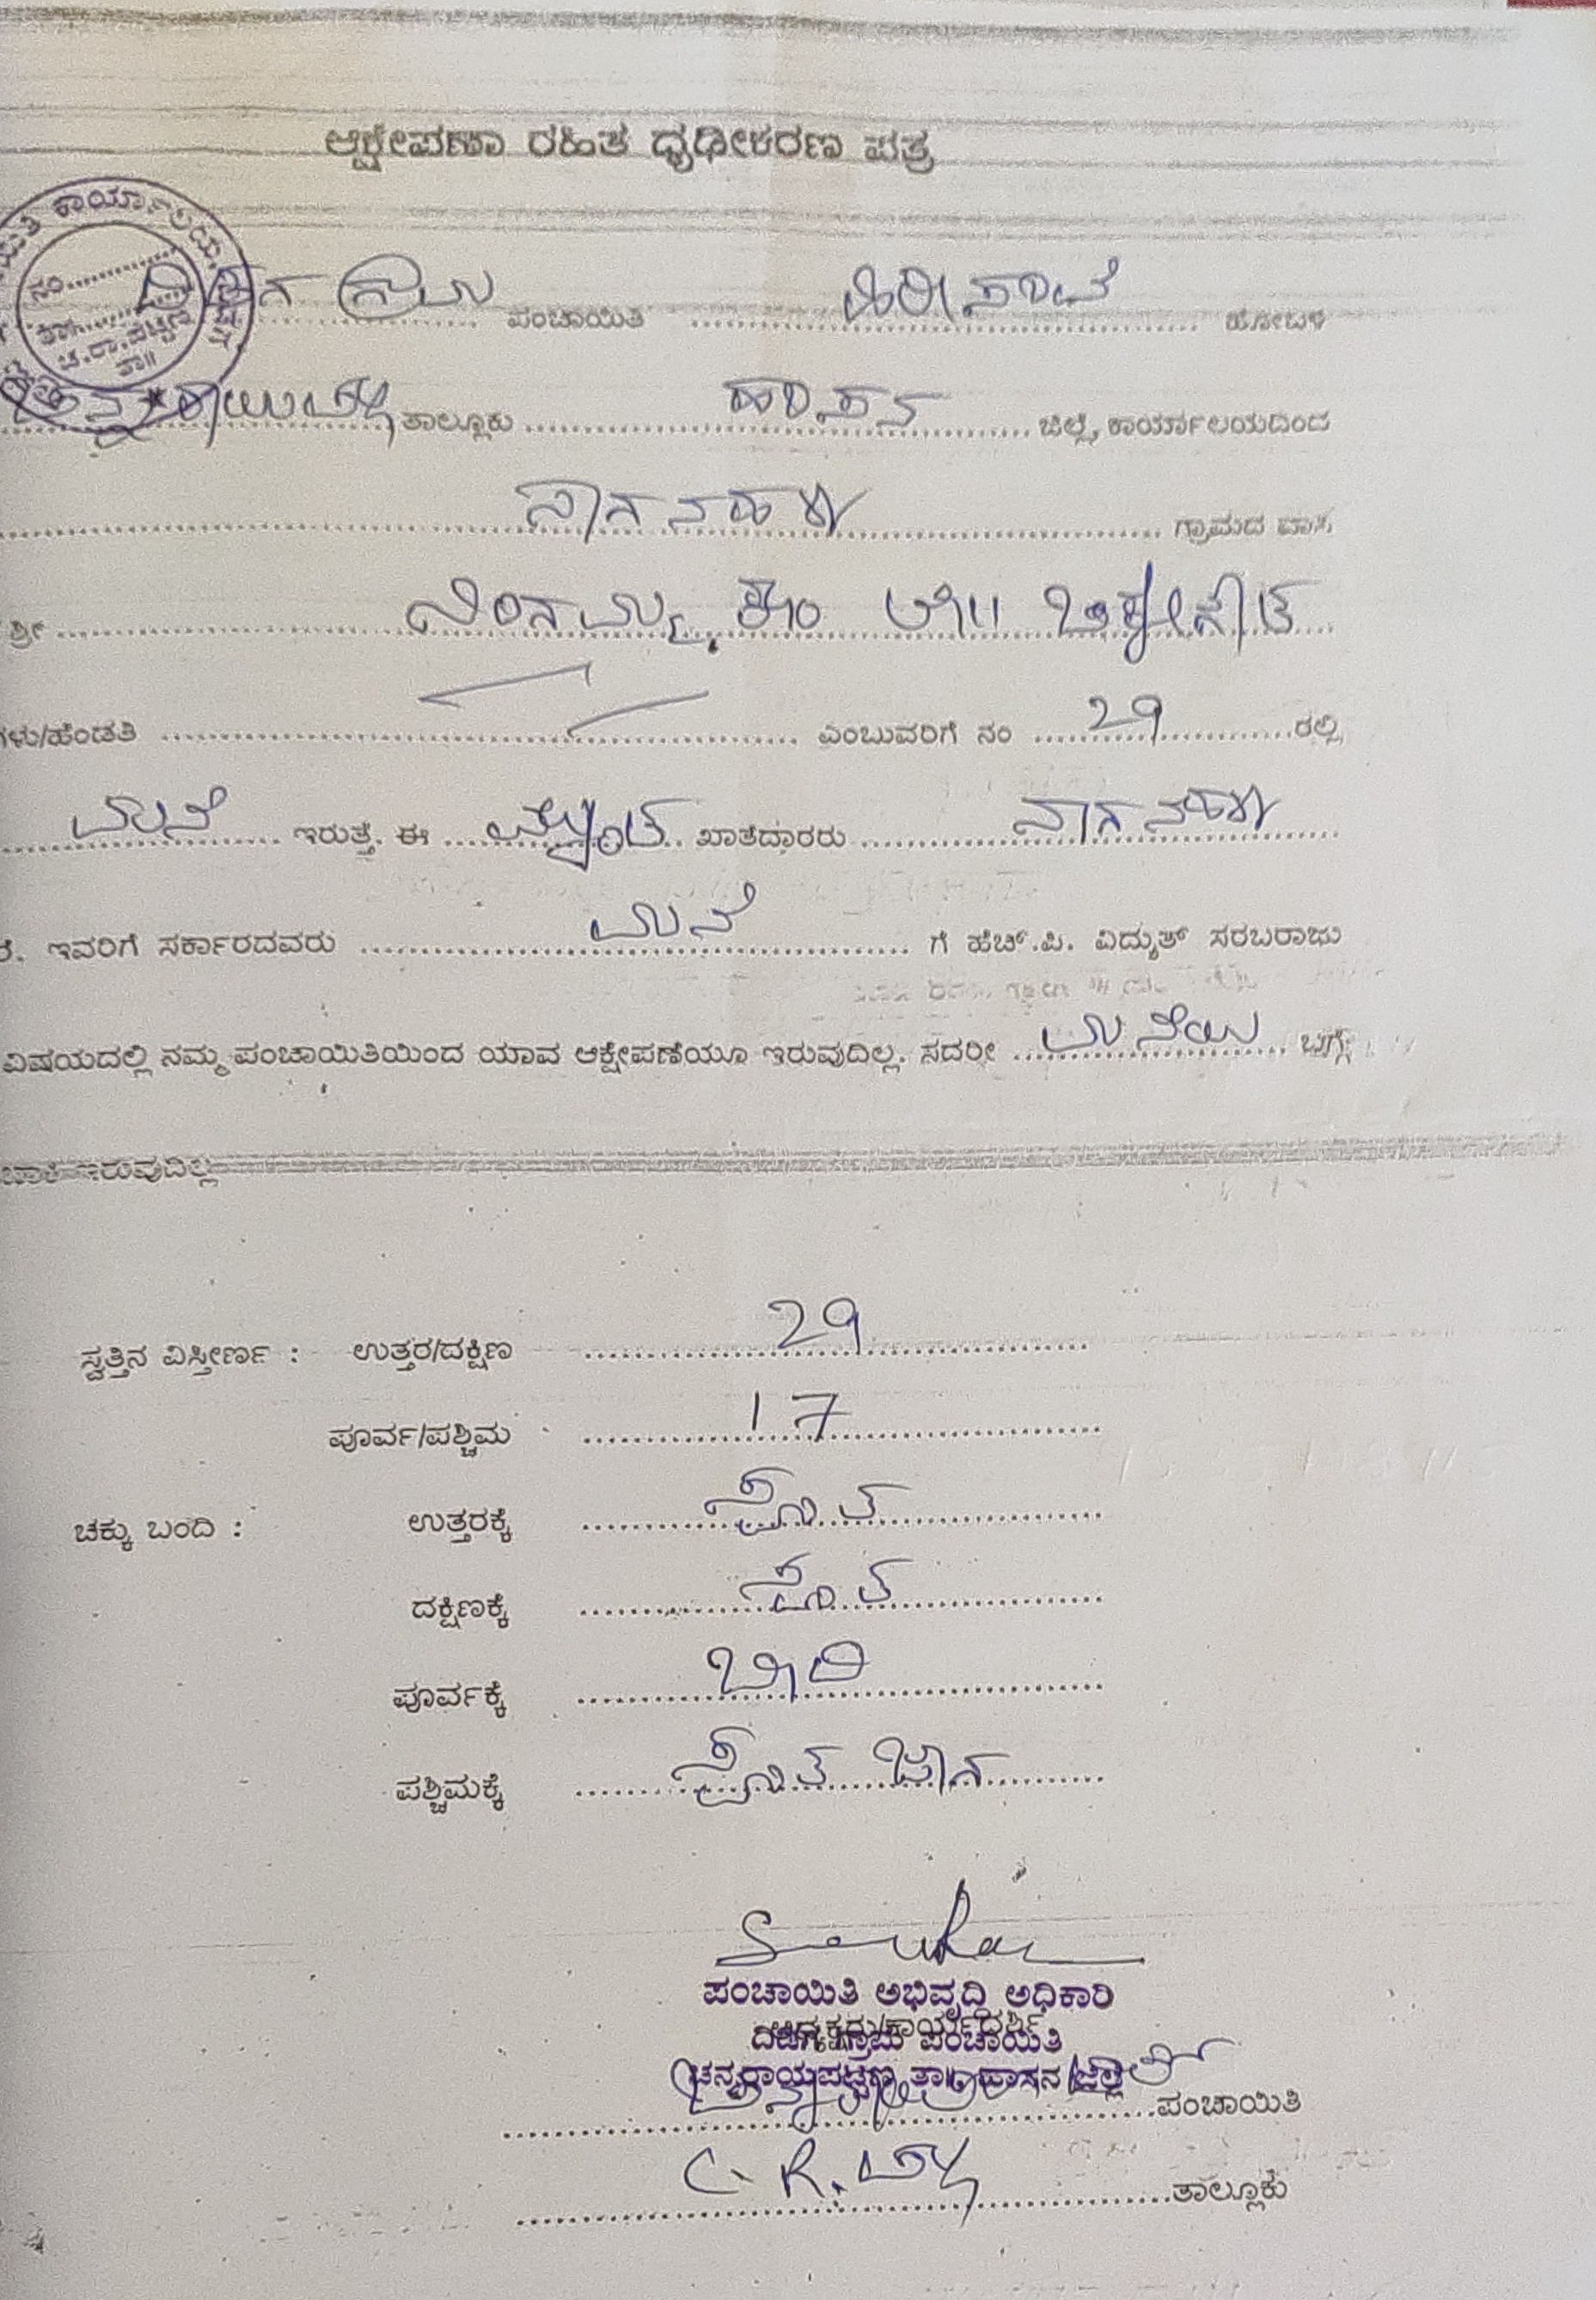 ಆಕ್ಷೇಪಣಾ ರಹಿತ ಧೃಢೀಕರಣ ಪತ್ರ
ದಿಡಗ ಗ್ರಾಮ ಪಂಚಾಯಿತಿ ಹಿರೀಸಾವೆ ಹೋಬಳಿ
ತಾಲ್ಲೂಕು ಹಾಸನ ಜಿಲ್ಲೆ, ಕಾರ್ಯಾಲಯದಿಂದ
ನಾಗನಹಳ್ಳಿ ಗ್ರಾಮದ ವಾಸಿ
ಶ್ರೀ ನಿಂಗಮ್ಮ ಕೋಂ ಲೇ॥
ಗಳು/ಹೆಂಡತಿ ಎಂಬುವರಿಗೆ ನಂ 29 ರಲ್ಲಿ
ಮನೆ ಇರುತ್ತೆ. ಈ ಖಾತೆದಾರರು ನಾಗನಹಳ್ಳಿ
ರೆ. ಇವರಿಗೆ ಸರ್ಕಾರದವರು ಮನೆ ಗೆ ಹೆಚ್.ಪಿ. ವಿದ್ಯುತ್ ಸರಬರಾಜು
ವಿಷಯದಲ್ಲಿ ನಮ್ಮ ಪಂಚಾಯಿತಿಯಿಂದ ಯಾವ ಆಕ್ಷೇಪಣೆಯೂ ಇರುವುದಿಲ್ಲ. ಸದರೀ ಮನೆಯ ಬಗ್ಗೆ
ಬಾಕಿ ಇರುವುದಿಲ್ಲ
ಸ್ವತ್ತಿನ ವಿಸ್ತೀರ್ಣ : ಉತ್ತರ/ದಕ್ಷಿಣ 29
ಪೂರ್ವ/ಪಶ್ಚಿಮ 17
ಚಕ್ಕು ಬಂದಿ : ಉತ್ತರಕ್ಕೆ ಸ್ವಂತ
ದಕ್ಷಿಣಕ್ಕೆ ಸ್ವಂತ
ಪೂರ್ವಕ್ಕೆ ಬೀದಿ
ಪಶ್ಚಿಮಕ್ಕೆ ಸ್ವಂತ ಜಾಗ
ಪಂಚಾಯಿತಿ ಅಭಿವೃದ್ಧಿ ಅಧಿಕಾರಿ
ಅಧ್ಯಕ್ಷರು/ಕಾರ್ಯದರ್ಶಿ
ದಿಡಗ ಗ್ರಾಮ ಪಂಚಾಯಿತಿ
ಚನ್ನರಾಯಪಟ್ಟಣ ತಾ॥ ಹಾಸನ ಜಿಲ್ಲೆ
ಪಂಚಾಯಿತಿ
C.R. ಪಟ್ಟಣ ತಾಲ್ಲೂಕು